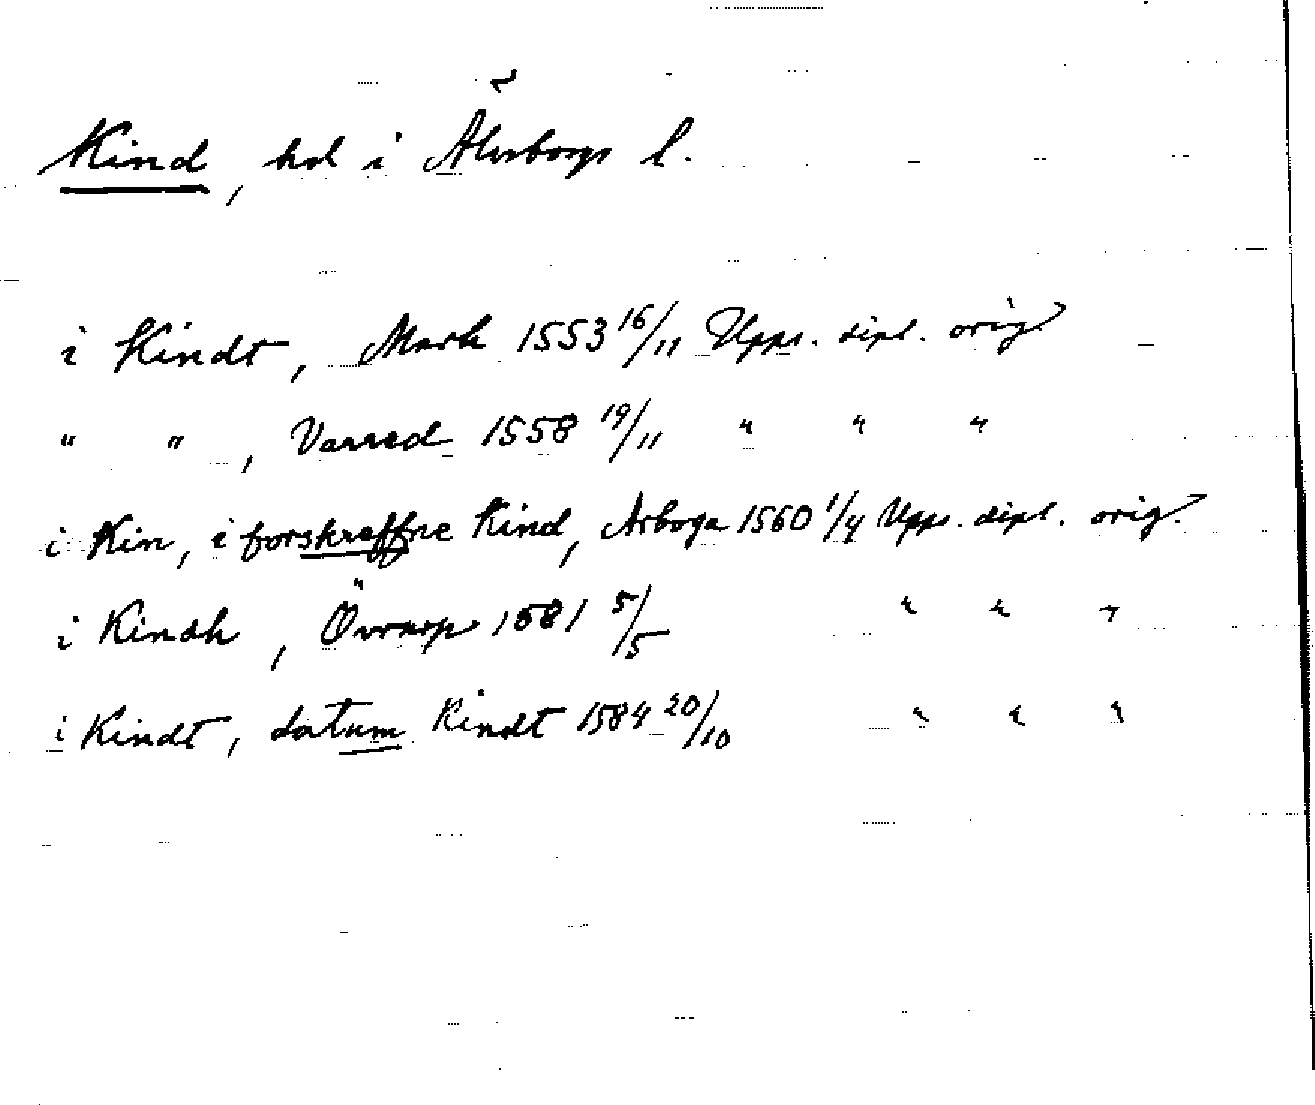 Kind, hd i Älvsborgs l.
i Kindt, Mark 1553 16/11 Upps. dipl. orig.
" " , Varred 1558 19/11 " " "
i Kin, i forskreffne Kind, Arboga 1560 1/4 Upps. dipl. orig.
i Kindh, 1581 5/5 " " "
i Kindt, datum Kindt 1584 20/10 " " "